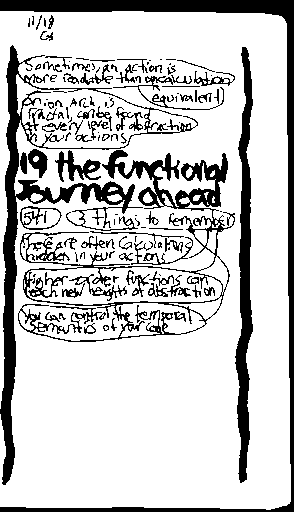 11/18
Sometimes, an action is
more readable than a calculation
equivalent
Onion Arch is
fractal, can be found
at every level of abstraction
in your actions
19 the functional
Journey ahead
541
3 things to remember
There are often Calculations
hidden in your actions
Higher-order functions can
reach new heights of abstraction
You can control the temporal
semantics of your code